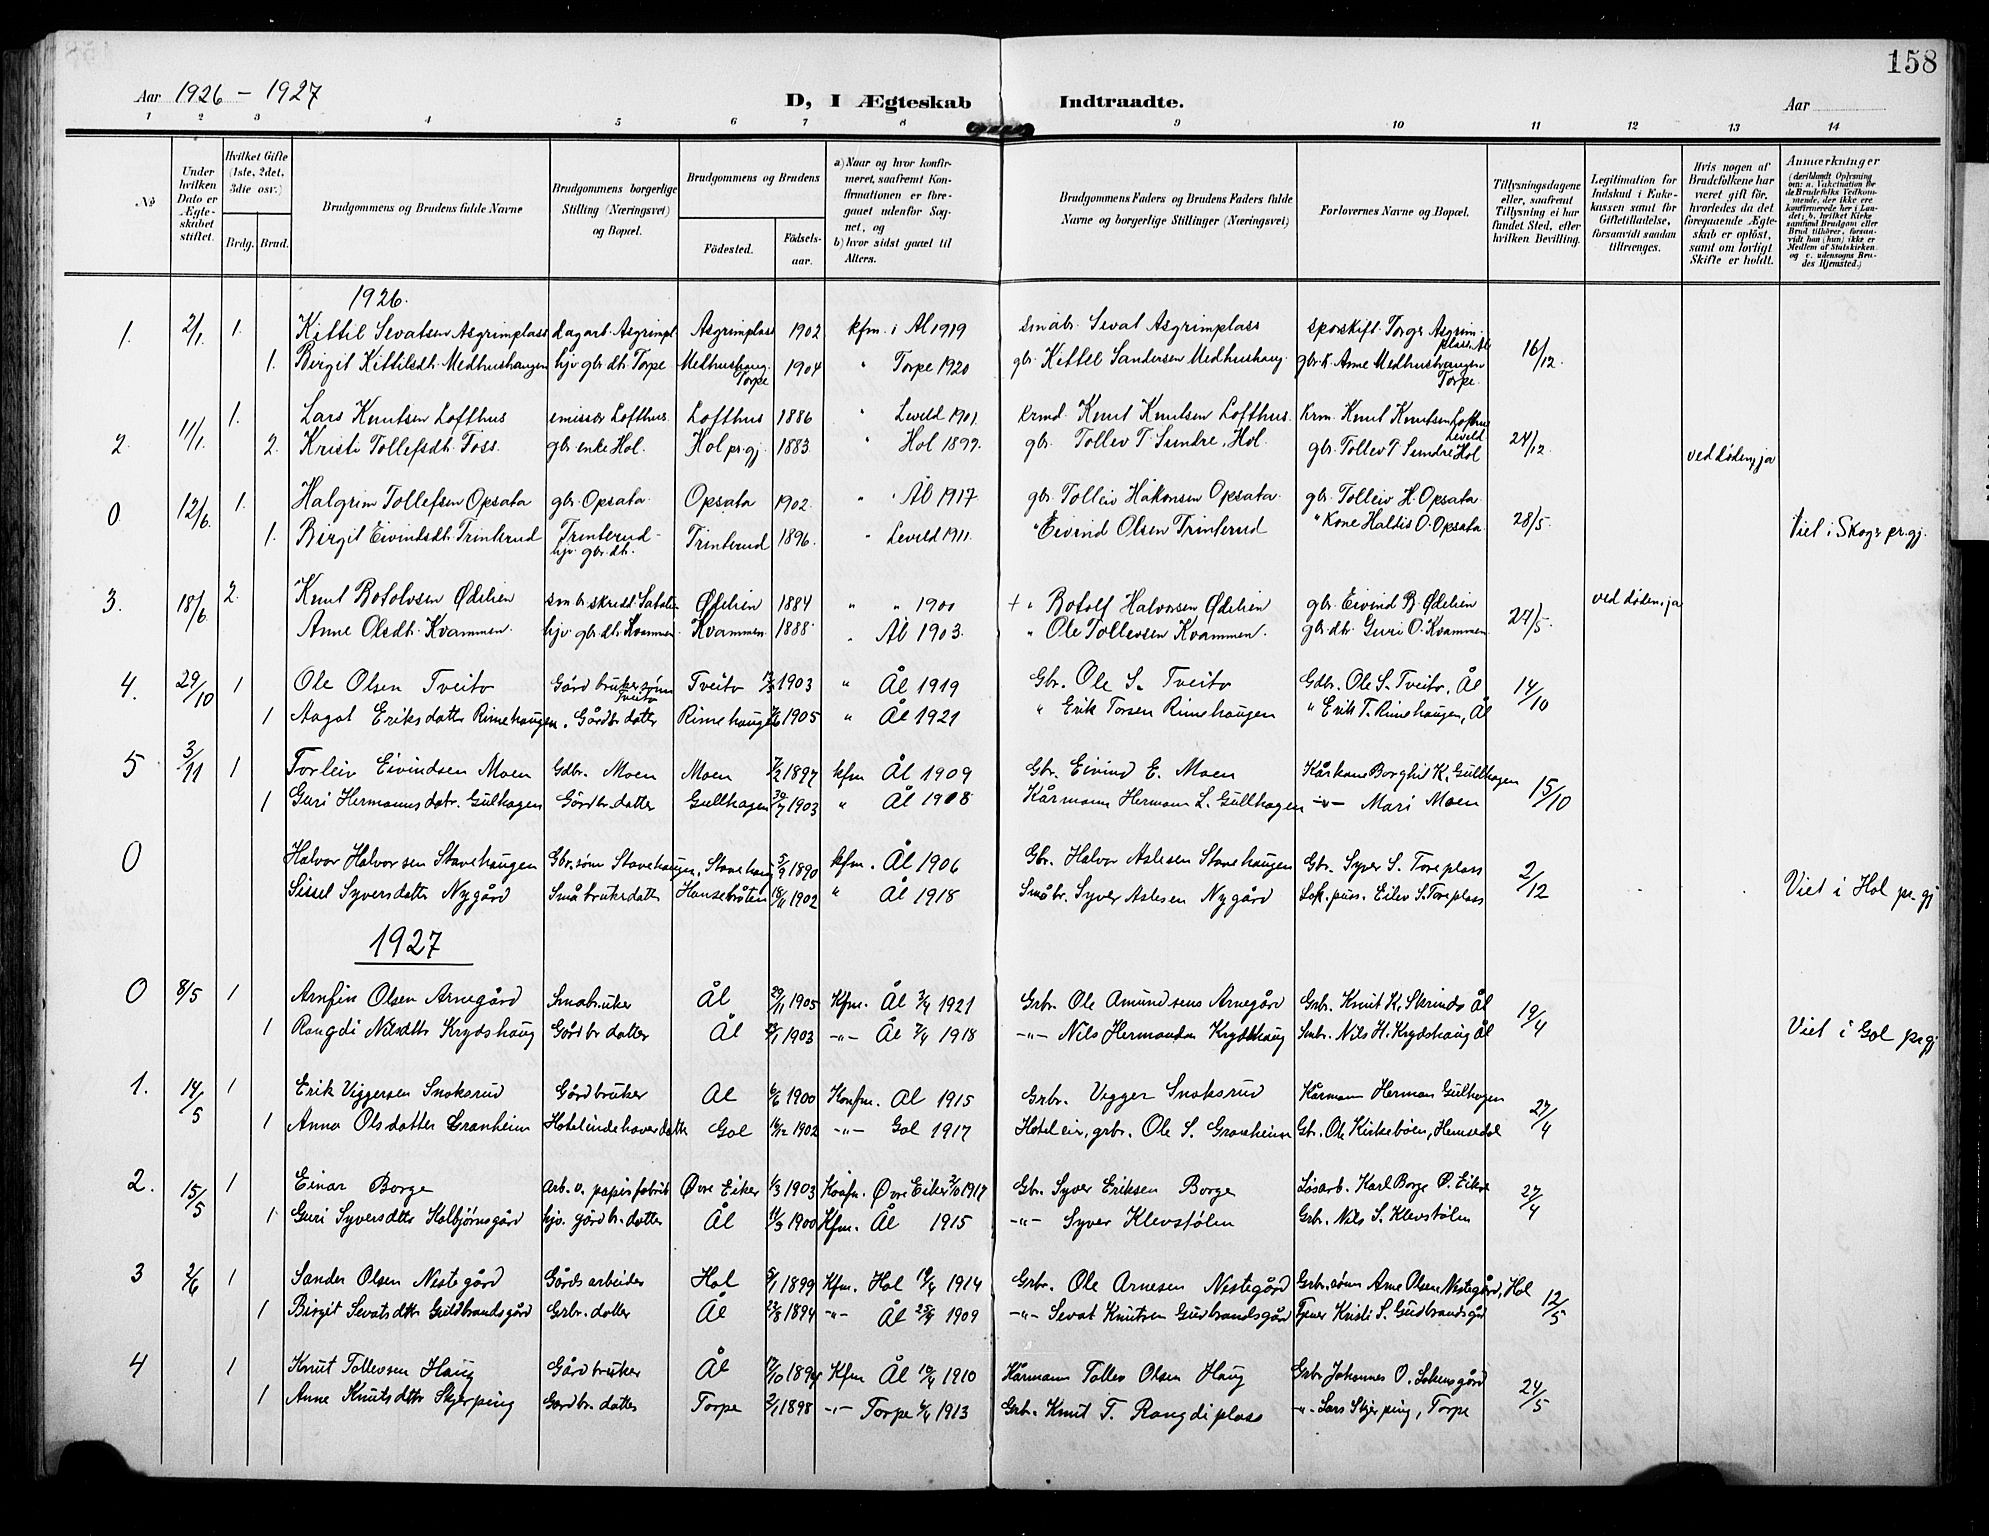 158
Aar 1926 – 1927 D, I Ægteskab Indtraadte. Aar
1 2 3 4 5 6 7 8 9 10 11 12 13 14
No
Under hvilken Dato er Ægteskabet stiftet.
Hvilket Gifte (1ste, 2det, 3die osv.)
Brdg. Brud.
Brudgommens og Brudens fulde Navne
Brudgommens borgerlige Stilling (Næringsvei) og Bopæl.
Brudgommens og Brudens
Fødested. Fødselsaar.
a) Naar og hvor konfirmeret, saafremt Konfirmationen er foregaaet udenfor Sognet, og
b) hvor sidst gaaet til Alters.
Brudgommens Faders og Brudens Faders fulde Navne og borgerlige Stillinger (Næringsvei)
Forlovernes Navne og Bopæl.
Tillysningsdagene eller, saafremt Tillysning ei har fundet Sted, efter hvilken Bevilling.
Legitimation for Indskud i Enkekassen samt for Giftetilladelse, forsaavidt saadan tiltrænges.
Hvis nogen af Brudefolkene har været gift før, hvorledes da det foregaaende Ægteskab er opløst, samt om lovligt Skifte er holdt.
Anmærkninger (deriblandt Oplysning om: a. Vakcination for de Brudefolks Vedkommende, der ikke ere konfirmerede her i Landet; b. hvilket Kirkesamfund Brudgom eller Brud tilhører, forsaavidt han (hun) ikke er Medlem af Statskirken og c. udensogns Brudes Hjemsted.)
1926.
1. 2/1. 1. Kittil Sevatsen Asgrimplass dagarb. Asgrimpl Asgrimplass 1902 kfm. i Ål 1919 småbr. Sevat Asgrimplass sporskift. Torge Asgrimplass, Ål 16/12.
1. Birgit Kittilsdt. Medhushaugen hjv. gbr. dt. Torpe Medhushaug. Torpe 1904 " Torpe 1920 gbr. Kittel Sandersen Medhushaug. gbr. k. Anne Medhushaugen Torpe.
2. 11/1. 1. Lars Knutsen Lofthus emissær Lofthus Lofthus 1886 " Leveld 1901. krmd. Knut Knutsen Lofthus krm. Knut Knutsen Lofthus Leveld 24/12.
2. Kristi Tollefsdt. Foss. gbr. enke Hol. Hol pr.gj. 1883. " Hol 1899. gbr. Tollev T. Sundre, Hol. gbr. Tollev T. Sundre Hol ved døden, ja
0 12/6. 1. Halgrim Tollefsen Opsata gbr. Opsata. Opsata 1902. " Ål 1917. gbr. Tolleiv Håkonsen Opsata. gbr. Tolleiv H. Opsata 28/5.
1. Birgit Eivindsdt. Trinterud Trinterud hjv. gbr. dt. Trinterud 1896. " Leveld 1911. " Eivind Olsen Trinterud " kone Haldis O. Opsata. Viet i Skoger pr.gj.
3. 18/6 2. Knut Botolvsen Ødelien sm. br. skredd. Ødelien 1884 " " 1900 + " Botolf Halvorsen Ødelien gbr. Eivind B. Ødelien 27/5. ved døden, ja
Anne Olsdt. Kvammen. hjv. gbr. dt. Kvammen. Kvammen. 1888. " Ål 1903. " Ole Tollevsen Kvammen. gbr. dt. Guri O. Kvammen
4. 29/10 1 Ole Olsen Tveito Gårdbrukersønn Tveito Tveito 1903 " Ål 1919 Gbr. Ole S. Tveito Gdbr. Ole S. Tveito, Ål 14/10
1 Aagot Eriksdatter Rimehaugen. Gårdbr. datter Rimehaugen 1905 " Ål 1921 " Erik Torsen Rimehaugen " Erik T. Rimehaugen, Ål
5 3/11 1 Torleiv Eivindsen Moen Gdbr. Moen Moen 1897 kfm Ål 1909 Gbr. Eivind E. Moen Kårkone Borghil K. Gullhagen 15/10
1 Guri Hermannsdatr. Gulhagen Gårdbr. datter Gullhagen 30/7 1903 " Ål 1908 Kårmann Hermann L. Gullhagen -"- Mari Moen
0 Halvor Halvorsen Stavehaugen Gbr. sønn Stavehaugen. Stavehaug 5/9 1890 kfm. Ål 1906 Gbr. Halvor Aslesen Stavehaugen Gbr. Syver S. Toreplass 2/12
Sissel Syversdatter Nygård Småbrukerdatter Hansebråten 18/11 1902 " Ål 1918 Småbr. Syver Aslesen Nygård Lok. puss. Eilev S. Toreplass Viet i Hol pr.gj
1927
0 8/5 1 Arnfin Olsen Arnegård Småbruker Ål 29/11 1905 Kfm. Ål 1921 Grbr. Ole Amundsens Arnegård Grbr. Knut K. Skrindo Ål 19/4
1 Rangdi Nilsdtr Krydshaug Gårdbr. datter Ål 1903 -"- Ål 1918 -"- Nils Hermandsen Krydshaug Smbr. Nils H. Krydshaug Ål Viet i Gol pr.gj
1. 14/5 1 Erik Viggersen Snoksrud Gårdbruker Ål 1900 Konfm. Ål 1915 Grbr. Vigger Snoksrud Kårmann Herman Gulhagen 27/4
1 Anna Olsdatter Granheim Hotelindehaverdatter Gol 1902 -"- Gol 1917 Hoteleier, grbr. Ole S. Granheim Gb. Ole Kirkebøen, Hemsedal
2. 15/5 1 Einar Borge arb. v. papirfabrik Øvre Eiker 1/3 1903 Konfm. Øvre Eiker 1917 Gbr. Syver Eriksen Borge Løsarb. Karl Borge Ø. Eiker 27/4
1 Guri Syversdtr Kolbjørnsgård hjv. gårdbr. datter Ål 1900 Kfm. Ål 1915 -"- Syver Klevstølen Grbr. Nils S. Klevstølen
3 2/6 1 Sander Olsen Nestegård Gårdsarbeider Hol 1899 Kfm. Hol 1914 Grbr. Ole Arnesen Nestegård Grbr. sønn Arne Olsen Nestegård, Hol 12/5
1 Birgit Sevatsdtr Guldbrandsgård Grbr. datter Ål 1894 -"- Ål 1909 -"- Sevat Knutsen Gudbrandsgård Tjener Kristi S. Gudbrandsgår
4 1 Knut Tollevsen Haug Gårdbruker Ål 1894 Kfm Ål 1910 Kårmann Tollev Olsen Haug Grbr Johannes O. 24/5
1 Anne Knutsdtr Skjerping Gardbr. datter Torpe 1898 -"- Torpe 1913 Grbr. Knut T. Rangdiplass " Lars Skjerping, Torpe